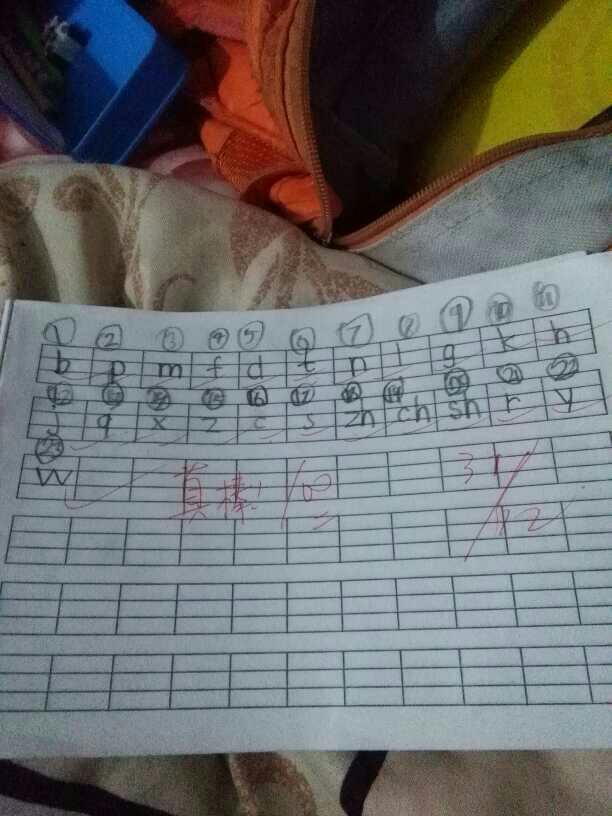 ① ② ③ ④ ⑤ ⑥ ⑦ ⑧ ⑨ ⑩ ⑪
b p m f d t n l g k h
⑫ ⑬ ⑭ ⑮ ⑯ ⑰ ⑱ ⑲ ⑳ ㉑ ㉒
j q x z c s zh ch sh r y
㉓
w
真棒! 100
31/12